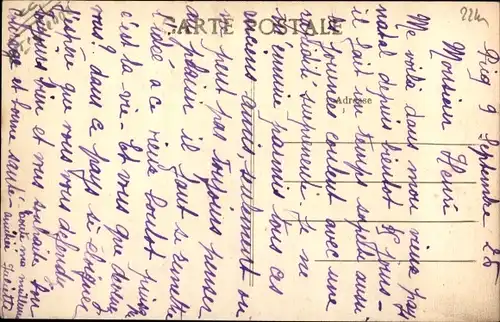 CARTE POSTALE
Adresse
224
9 Septembre 25
Monsieur Henri
Me voilà dans mon vieux pays
natal depuis bientôt 15 jours -
il fait un temps superbe aussi
les journées coulent avec une
rapidité surprenante. Je ne
m'ennuie parmis tous os
amis aussi seulement on
peut pas toujours penser
au plaisir il faut se remettre
l'idée à ce vieux boulot
c'est la vie. Et vous que devenez
vous? dans ce pays si éloigné
j'espère que vous vous défendez
toujours bien et vous souhaite bon
courage et bonne santé. mes meilleures
amitiés Juliette